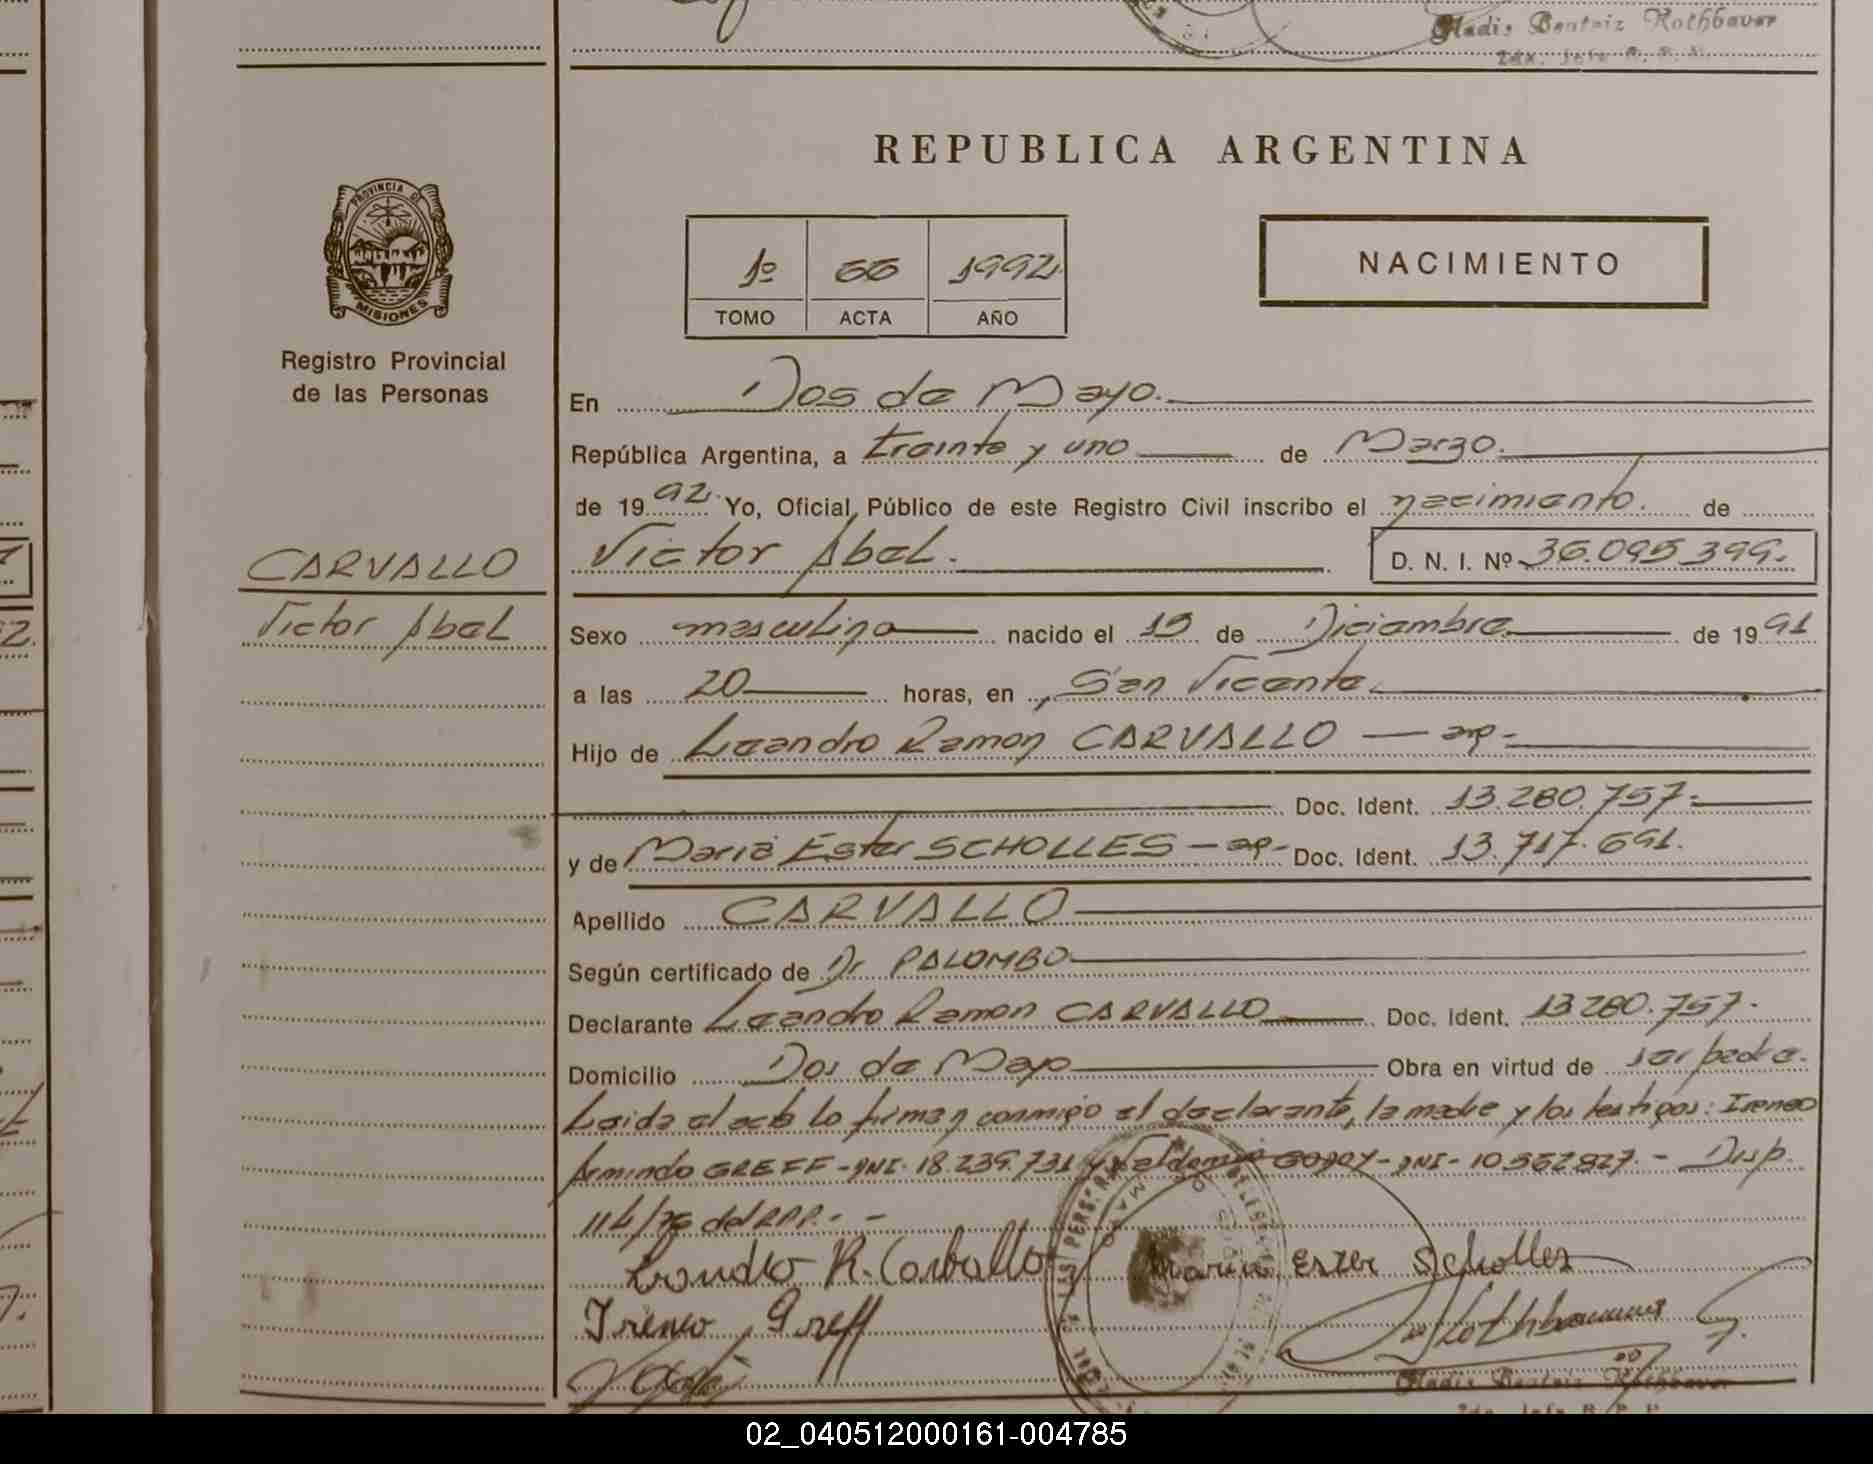 Gladis Beatriz Rothbaver
2da. Jefe R. P. P.
REPUBLICA ARGENTINA
PROVINCIA DE
MISIONES
Registro Provincial
de las Personas
1º 66 1992
TOMO ACTA AÑO
NACIMIENTO
En Dos de Mayo.
República Argentina, a treinta y uno de Marzo.
de 1992. Yo, Oficial Público de este Registro Civil inscribo el nacimiento. de
CARVALLO
Victor Abel
Victor Abel. D. N. I. Nº 36.095.399.
Sexo masculino nacido el 15 de Diciembre de 1991
a las 20 horas, en San Vicente.
Hijo de Leandro Ramon CARVALLO — arg-
Doc. Ident. 13.280.757-
y de Maria Ester SCHOLLES - ar- Doc. Ident. 13.717.691.
Apellido CARVALLO
Según certificado de Dr PALOMBO
Declarante Leandro Ramon CARVALLO Doc. Ident. 13.280.757.
Domicilio Dos de Mayo Obra en virtud de ser padre.
Leida el acta lo firman conmigo el declarante, la madre y los testigos: Ireneo
Armindo GREFF - DNI. 18.239.731 y Valdomiro GODOY - DNI - 10.562827. - Disp.
114/76 del RPP. - -
Leandro R. Carballo Maria Ester Scholles
Ireneo Greff
Gladis Beatriz Rothbaver
2da. Jefe R. P. P.
02_040512000161-004785